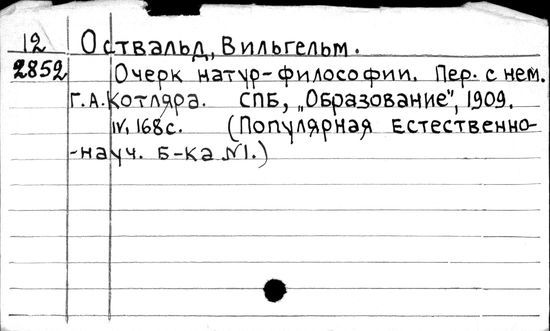 12 Оствальд, Вильгельм.
2852 Очерк натур-философии. Пер. с нем.
Г. А. Котляра. СПБ, „Образование", 1909.
IV, 168 с. (Популярная Естественно-
-науч. Б-ка №1.)